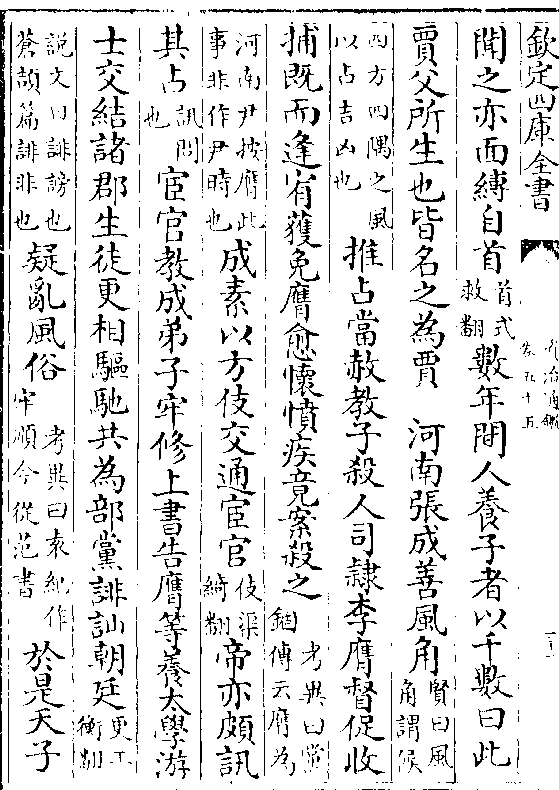 欽定四庫全書
資治通鑑
卷五十五
聞之亦面縛自首首式救翻數年間人養子者以千數曰此
賈父所生也皆名之為賈　河南張成善風角賢曰風角謂候
四方四隅之風以占吉凶也推占當赦教子殺人司隸李膺督促收
捕既而逢宥獲免膺愈懷憤疾竟案殺之考異曰黨錮傳云膺為
河南尹按膺此事非作尹時也成素以方伎交通宦官伎渠綺翻帝亦頗訊
其占訊問也宦官教成弟子牢修上書告膺等養太學游
士交結諸郡生徒更相驅馳共為部黨誹訕朝廷更工衡翻
說文曰誹謗也蒼頡篇誹非也疑亂風俗考異曰袁紀作牢順今從范書於是天子